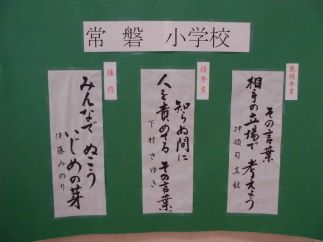 常磐 小学校
最優秀賞
その言葉
相手の立場で 考えよう
優秀賞
知らぬ間に
人を責めてる その言葉
下村 さゆき
佳作
みんなで ぬこう
いじめの芽
伊藤みのり